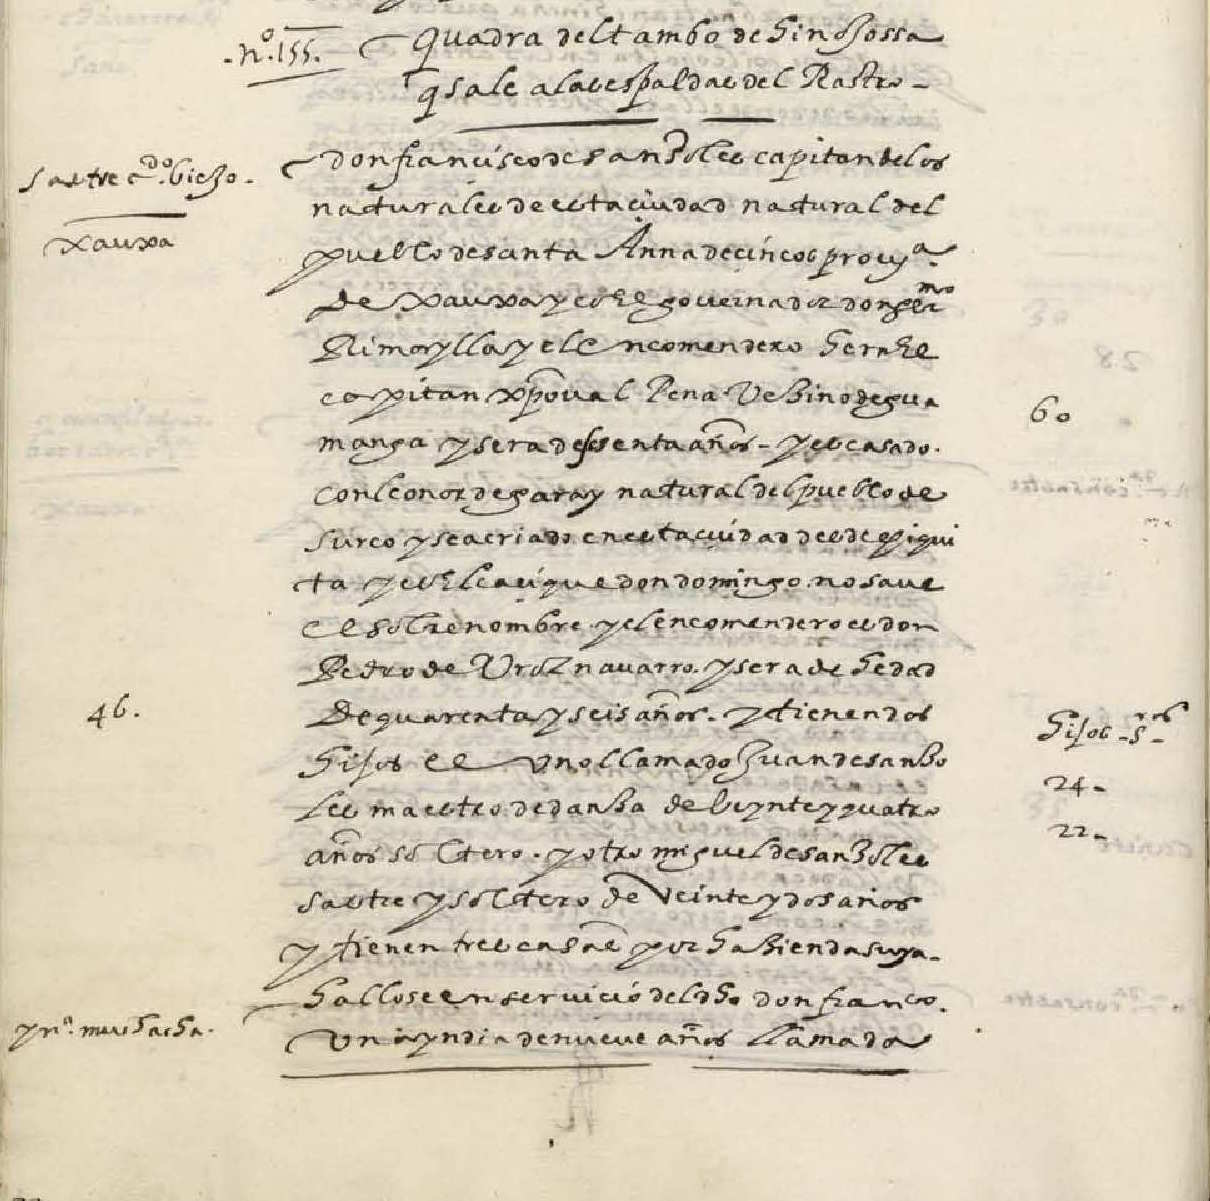 .n.º 155. Quadra del tambo de hinojossa
q̃ sale a las espaldas del Rastro -
sastre c.do biejo.
don francisco de sanzoles capitan de los
naturales de esta ciudad natural del
xauxa
pueblo de santa Anna de cincos prouy.a
de xauxa y es El gouernador don ger.mo
Rimaylla y el Encomendero hera El
capitan xp̃oual Pena Vezino de gua
60
manga y sera de sesenta años - y es casado.
con leonor de garay natural del pueblo de
surco y se a criado en esta ciudad desde chiqui
ta y es El casique don domingo no saue
el sobrenombre y el encomendero es don
Pedro de Vroz nauarro. y sera de hedad
46.
De quarenta y seis años. y tienen dos
hijos - s.res -
hijos el vno llamado Juan de sanzo
24 -
les maestro de danza de beynte y quatro
22 -
años soltero. y otro miguel de sanzoles
sastre y soltero de Veinte y dos años
y tienen tres casas por hazienda suya -
hallose en seruicio del dho don fran.co.
yn.a muchacha.
vna yndia de nueue años llamada